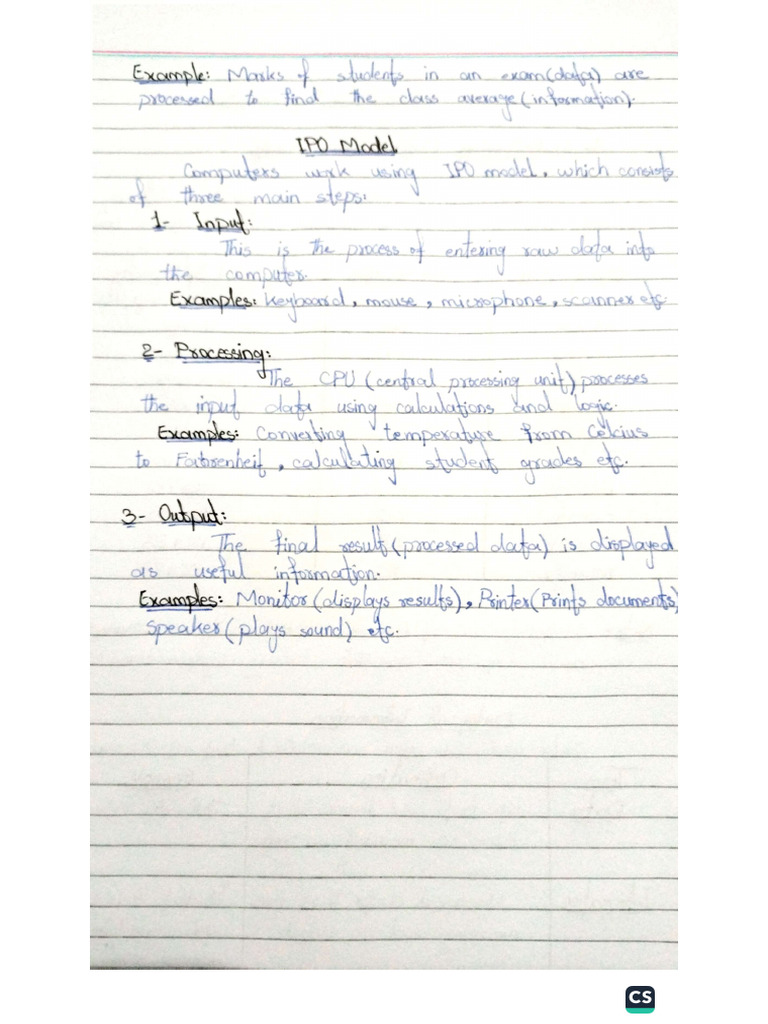 Example: Marks of students in an exam(data) are
processed to find the class average(information).
IPO Model
Computers work using IPO model, which consists
of three main steps:
1- Input:
This is the process of entering raw data into
the computer.
Examples: Keyboard, mouse, microphone, scanner etc.
2- Processing:
The CPU (central processing unit) processes
the input data using calculations and logic.
Examples: Converting temperature from Celcius
to Fahrenheit, calculating student grades etc.
3- Output:
The final result(processed data) is displayed
as useful information.
Examples: Monitor(displays results), Printer(Prints documents)
Speaker(plays sound) etc.
CS